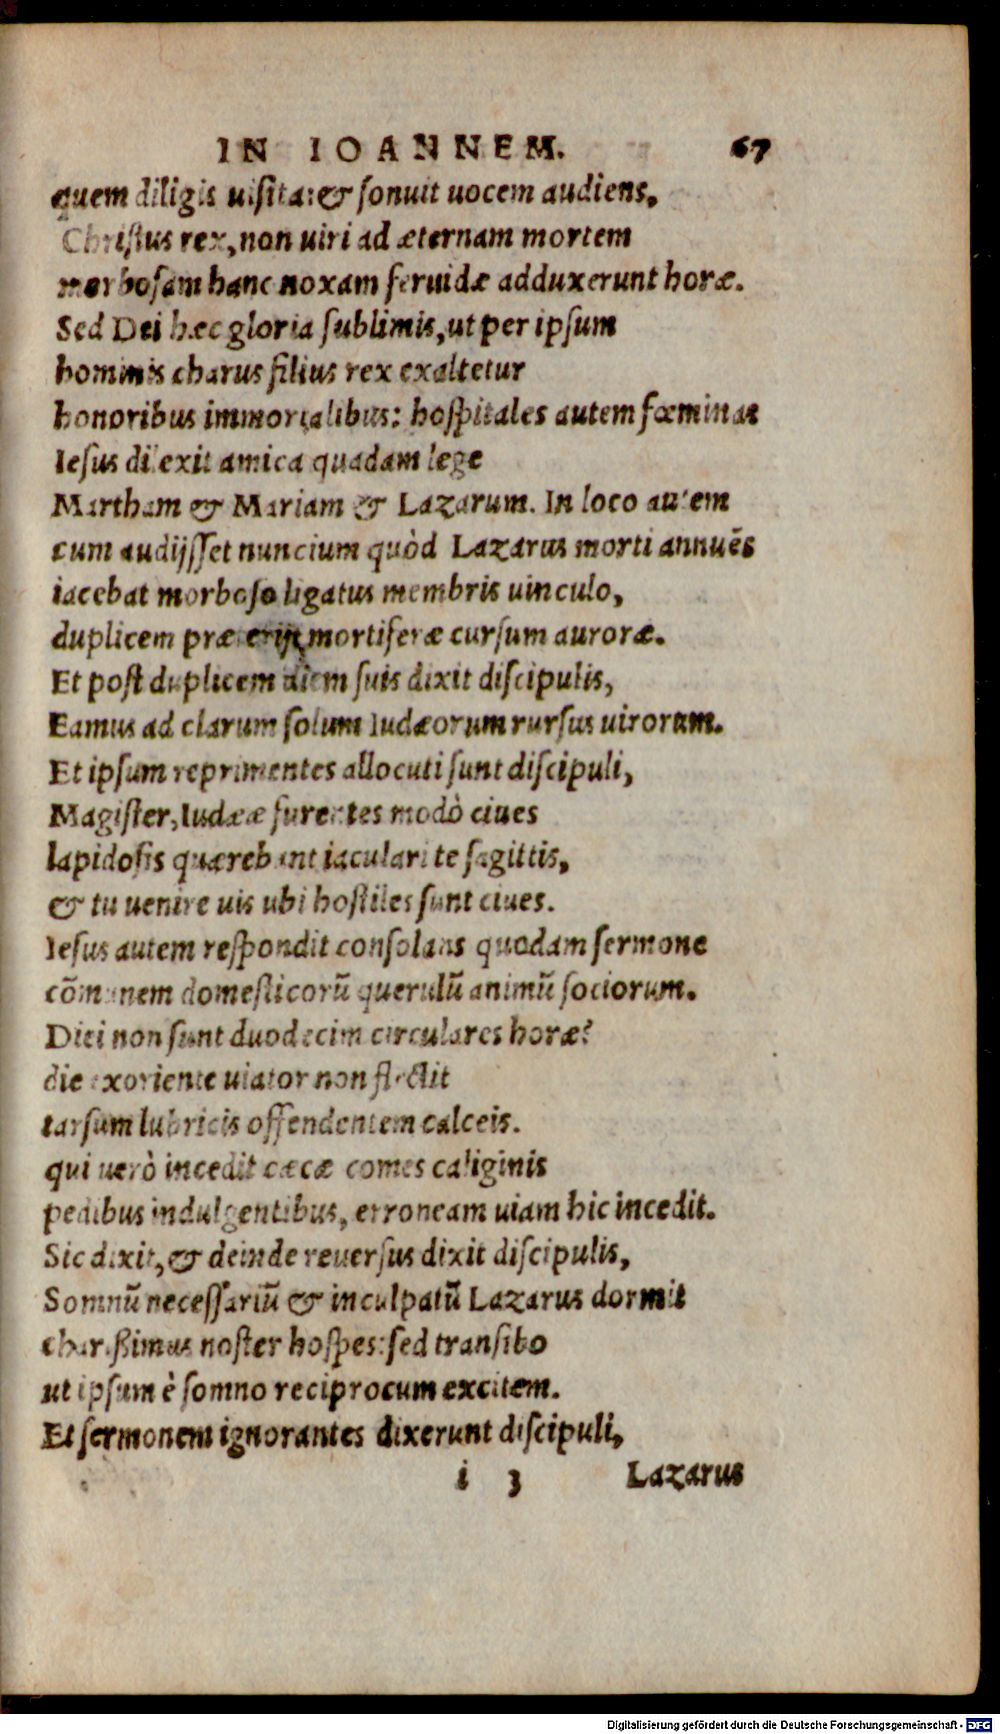 IN IOANNEM. 67
quem diligis uisita: & sonuit uocem audiens,
Christus rex, non uiri ad æternam mortem
morbosam hanc noxam feruidæ adduxerunt horæ.
Sed Dei hæc gloria sublimis, ut per ipsum
hominis charus filius rex exaltetur
honoribus immortalibus: hospitales autem fœminas
Iesus dilexit amica quadam lege
Martham & Mariam & Lazarum. In loco autem
cum audijsset nuncium quòd Lazarus morti annuẽs
iacebat morboso ligatus membris uinculo,
duplicem præterijt mortiferæ cursum auroræ.
Et post duplicem diem suis dixit discipulis,
Eamus ad clarum solum Iudæorum rursus uirorum.
Et ipsum reprimentes allocuti sunt discipuli,
Magister, Iudææ furentes modò ciues
lapidosis quærebant iaculari te sagittis,
& tu uenire uis ubi hostiles sunt ciues.
Iesus autem respondit consolans quodam sermone
cõmunem domesticorũ querulũ animũ sociorum.
Diei non sunt duodecim circulares horæ?
die exoriente uiator non flectit
tarsum lubricis offendentem calceis.
qui uerò incedit cæcæ comes caliginis
pedibus indulgentibus, erroneam uiam hic incedit.
Sic dixit, & deinde reuersus dixit discipulis,
Somnũ necessariũ & inculpatũ Lazarus dormit
charißimus noster hospes: sed transibo
ut ipsum è somno reciprocum excitem.
Et sermonem ignorantes dixerunt discipuli,
i 3 Lazarus
Digitalisierung gefördert durch die Deutsche Forschungsgemeinschaft - DFG